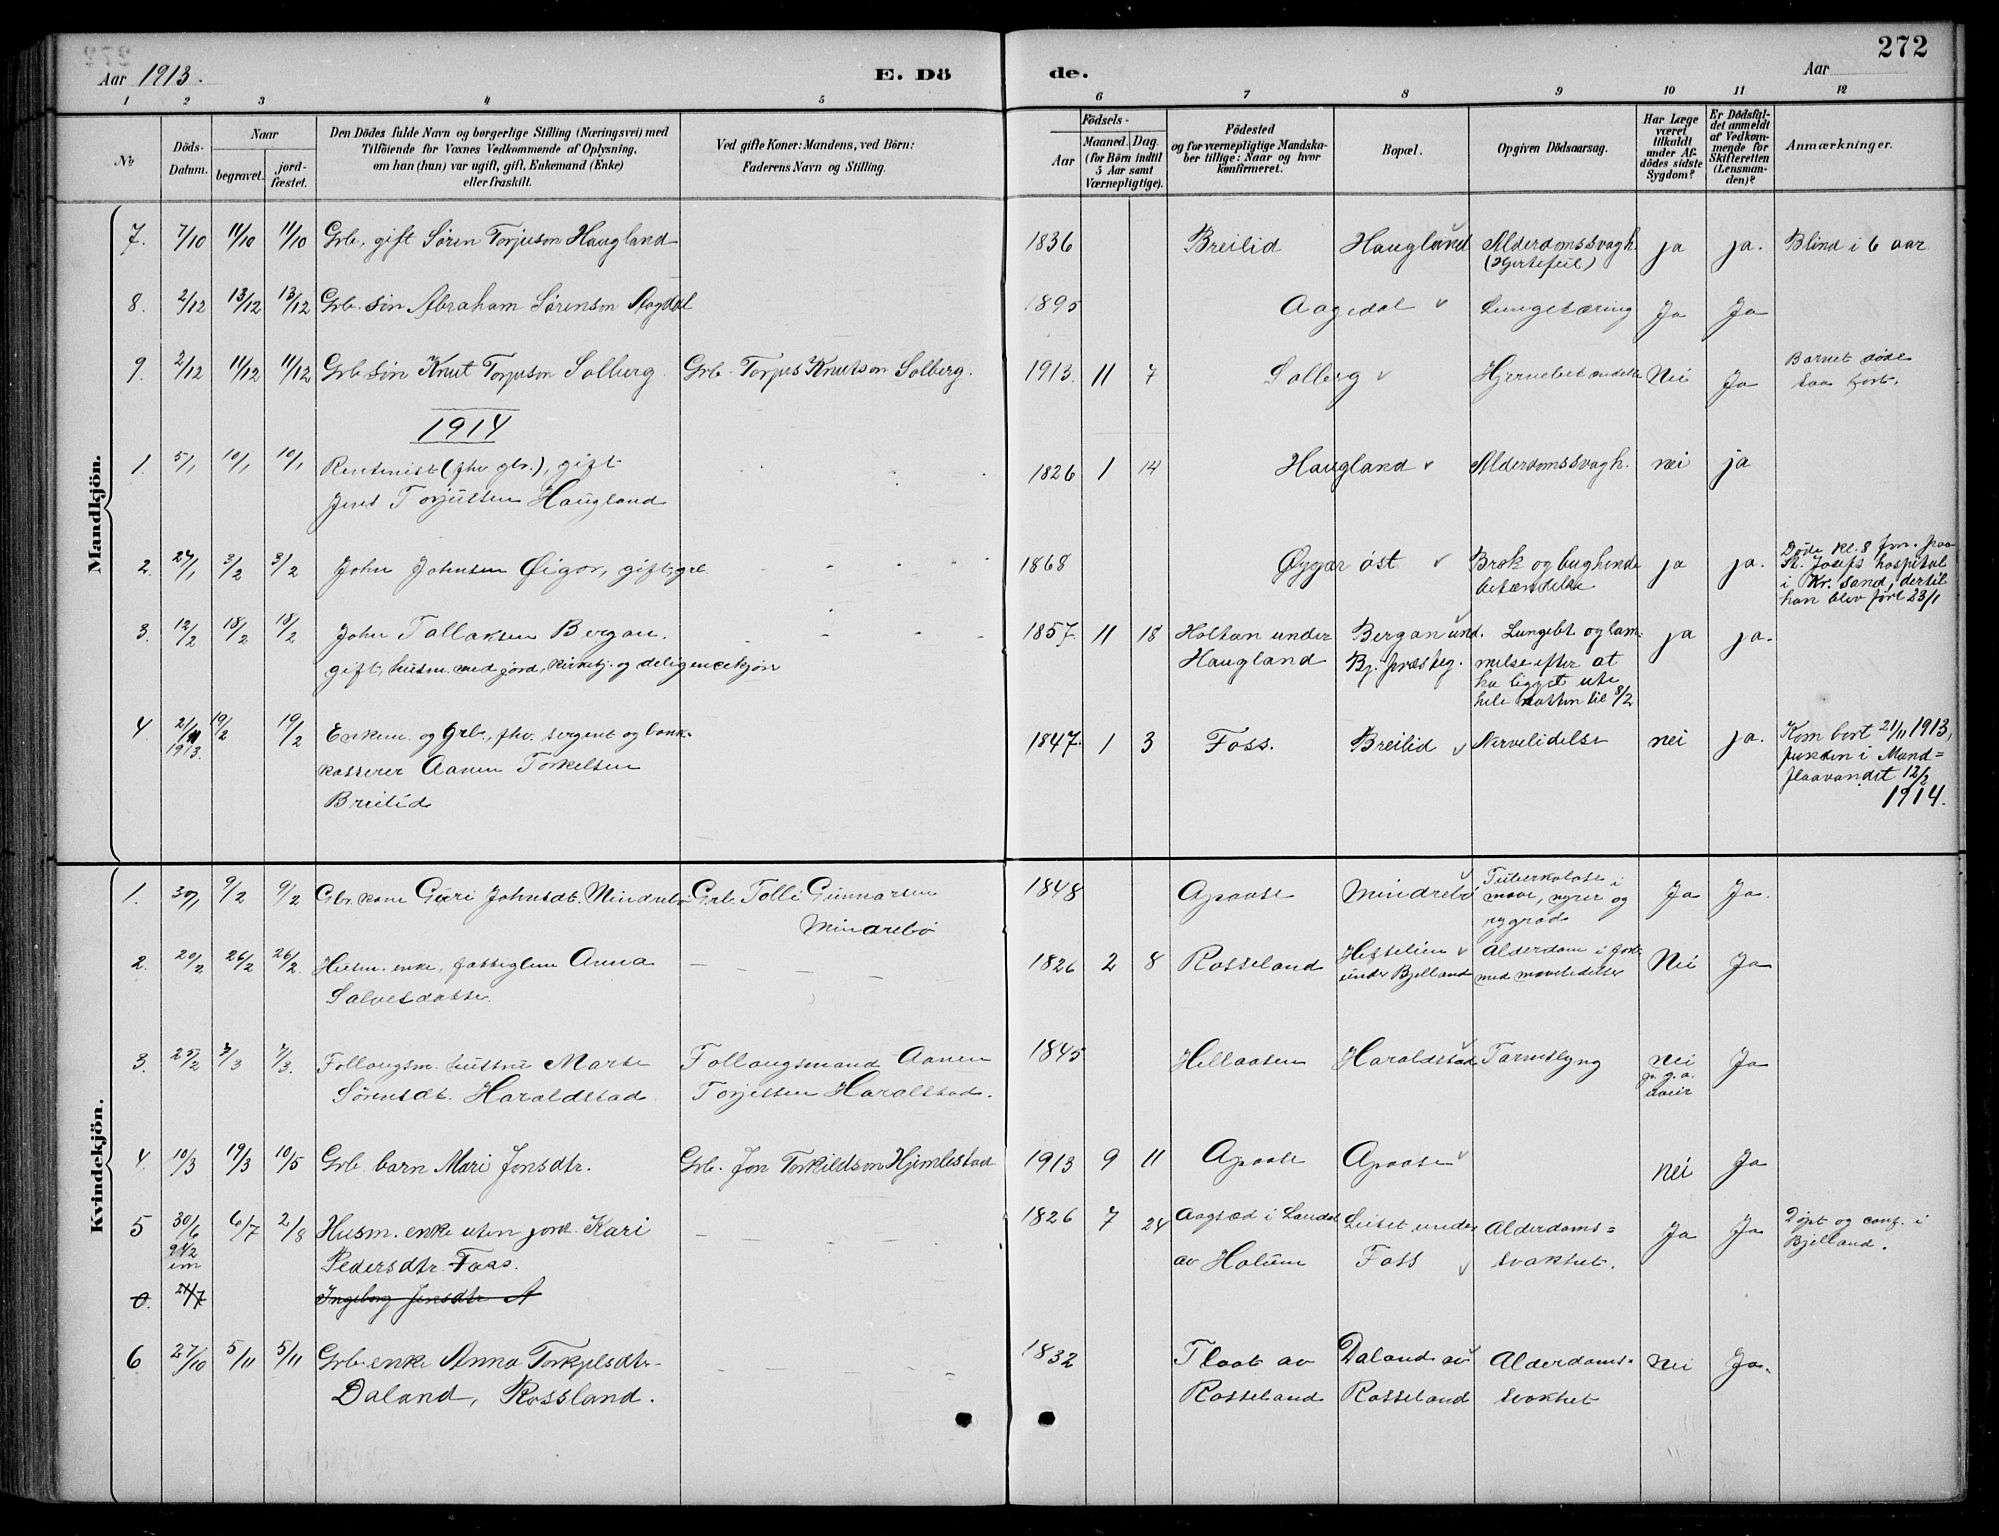 272
Aar 1913.
E. Dö
de.
Aar
1 2 3 4 5 6 7 8 9 10 11 12
No
Döds-Datum.
Naar
begravet.
jord-fæstet.
Den Dödes fulde Navn og borgerlige Stilling (Næringsvei) med
Tilföiende for Voxnes Vedkommende af Oplysning,
om han (hun) var ugift, gift, Enkemand (Enke)
eller fraskilt.
Ved gifte Koner: Mandens, ved Börn:
Faderens Navn og Stilling.
Födsels-
Aar
Maaned. Dag.
(for Börn indtil
5 Aar samt
Værnepligtige).
Födested
og for værnepligtige Mandska-
ber tillige: Naar og hvor
konfirmeret.
Bopæl.
Opgiven Dödsaarsag.
Har Læge
været
tilkaldt
under Af-
dödes sidste
Sygdom?
Er Dödsfal-
det anmeldt
af Vedkom-
mende for
Skifteretten
(Lensman-
den)?
Anmærkninger.
Mandkjön.
7. 7/10 11/10 11/10 Grb. gift Søren Torjuson Haugland 1836 Breilid Haugland Alderdomssvagh. ja ja. Blind i 6 aar
(Hjertefeil)
8. 2/12 13/12 13/12 Grb. søn Abraham Sørenson Aagedal 1895 Aagedal Lungetæring Ja Ja
9. 2/12 11/12 11/12 Grb. søn Knut Torjuson Solberg. Grb. Torjus Knutson Solberg. 1913 11 7 Solberg Hjernebetændelse Nei Ja Barnet døde
saa fort.
1914
1. 5/1 10/1 10/1 Rentenist (fhv. gbr.), gift 1826 1 14 Haugland Alderdomssvagh. nei ja
Jens Torjussen Haugland
2. 27/1 3/2 3/2 John Johnsen Øigar, gift, grb. 1868 Øygar øst Brok og bughinde ja ja. Døde kl. 8 fm. paa
betændelse St. Josefs hospital
i Kr.sand, dertil
han blev ført 23/1
3. 12/2 18/2 18/2 John Tallaksen Bergan. 1857 11 18 Holtan under Bergan und. Lungebt og lam- ja ja.
gift, husm. med jord, kirketj. og deligencekjører Haugland Bj. præsteg. melse efter at
ha ligget ute
hele natten til 8/2
4. 21/11 1913. 19/2 19/2 Enkem. og Grb., fhv. sergent og bank- 1847. 1 3 Foss. Breilid Nervelidelse nei ja. Kom bort 21/11 1913,
kasserer Aanen Torkelsen funden i Mand-
Breilid flaavandet 12/2
1914.
Kvindekjön.
1. 30/1 9/2 9/2 Gbr. kone Guri Johnsdt. Mindrebø Grb. Tolli Gunnarsen 1848 Apaase Mindrebø Tuberkolose i Ja Ja.
Mindrebø mave, nyrer og
rygrad
2. 20/2 26/2 26/2 Husm. enke, fattiglem Anna 1826 2 8 Rosseland Hesselien Alderdom i forb. Nei Ja
Salvesdatter. under Bjelland med mavelidelse
3. 25/2 7/3 7/3. Follaugsm. hustru Marte Follaugsmand Aanen 1845 Hellaasen Haraldstad Tarmslyng nei Ja
Sørensdt. Haraldstad. Torjessen Haralstad. p. g. a.
uveir
4. 10/3 19/3 10/5 Grb. barn Mari Jonsdtr. Grb. Jon Torkildson Hjemlestad 1913 9 11 Apaase Apaase nei Ja
5 30/6 6/7 2/8 Husm. enke uten jord Kari 1826 7 24 Aagsæd i Laudal Luset under Alderdoms- Ja Ja Døpt og conf. i
9 1/2 em Pedersdtr. Foss. av Holum Foss svakhet. Bjelland.
0. 24/7 Ingeborg Jensdtr A
6 27/10 5/11 5/11 Grb. enke Anna Torkjelsdtr. 1832 Flaat av Daland av Alderdoms- Nei Ja.
Daland, Rossland. Rosseland Rosseland svakhet